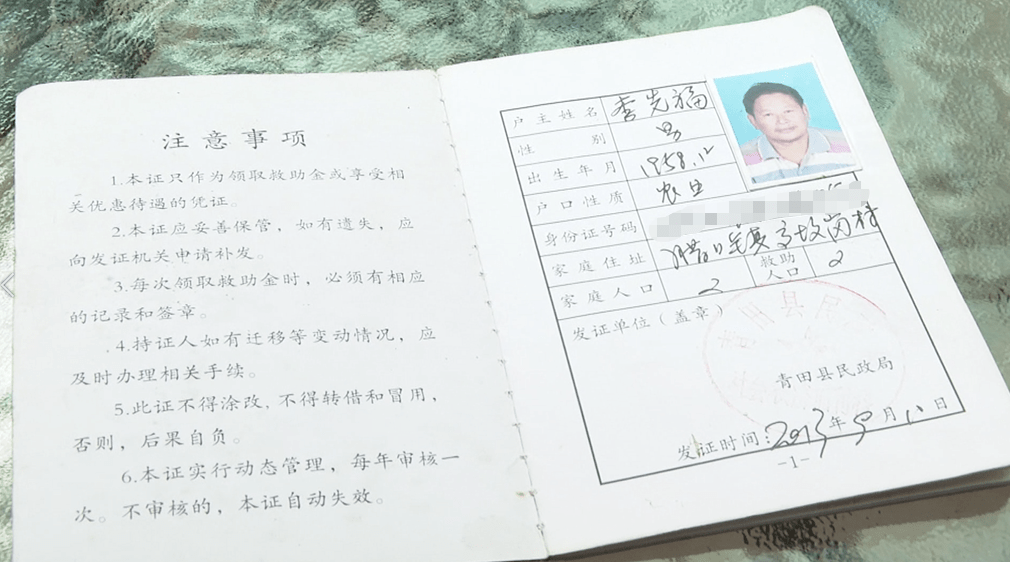 注意事项
1.本证只作为领取救助金或享受相
关优惠待遇的凭证。
2.本证应妥善保管，如有遗失，应
向发证机关申请补发。
3.每次领取救助金时，必须有相应
的记录和签章。
4.持证人如有迁移等变动情况，应
及时办理相关手续。
5.此证不得涂改，不得转借和冒用，
否则，后果自负。
6.本证实行动态管理，每年审核一
次。不审核的，本证自动失效。
户主姓名 李先福
性别 男
出生年月 1958.12
户口性质 农业
身份证号码
家庭住址 岗村
家庭人口 2 救助人口 2
发证单位（盖章）
青田县民政局
发证时间：2013年9月10日
-1-